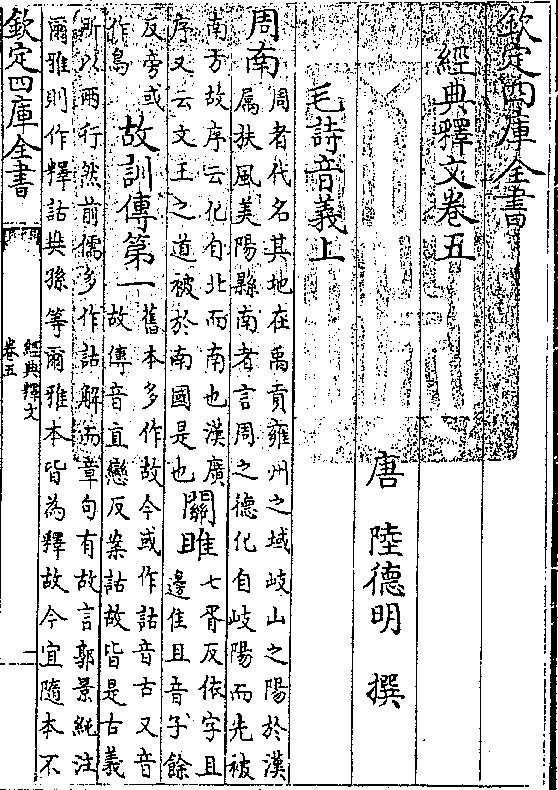 欽定四庫全書
經典釋文卷五
唐 陸德明 撰
毛詩音義上
周南 周者代名其地在禹貢雍州之域岐山之陽於漢
属扶風美陽縣南者言周之德化自岐陽而先被
南方故序云化自北而南也漢廣
序又云文王之道被於南國是也 關雎 七胥反依字且
邊隹且音子餘
反旁或
作鳥 故訓傳第一 舊本多作故今或作詁音古又音
故傳音直戀反案詁故皆是古義
所以兩行然前儒多作詁解而章句有故言郭景純注
爾雅則作釋詁樊孫等爾雅本皆為釋故今宜隨本不
欽定四庫全書
經典釋文
卷五
一